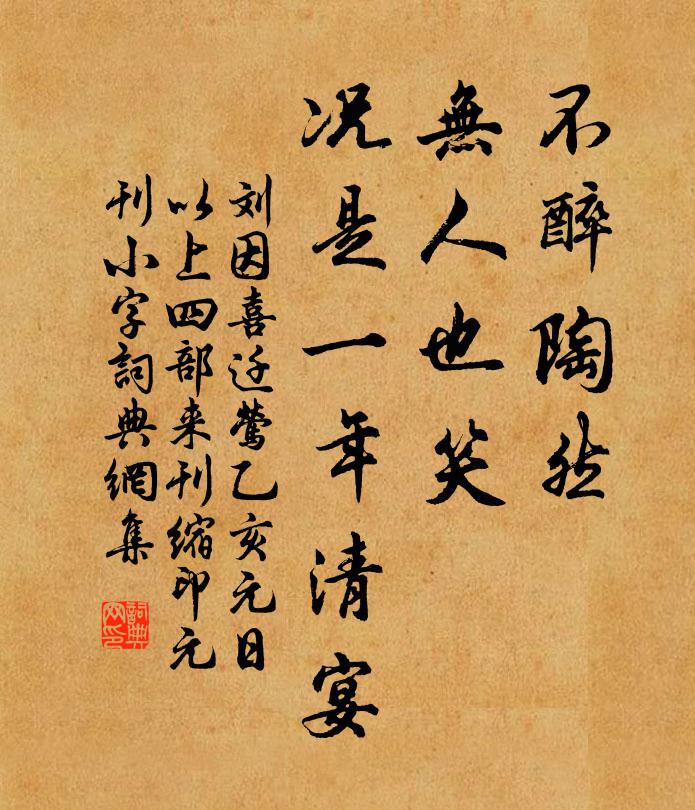 不醉陶然
無人也笑
况是一年清宴
刘因喜迁莺乙亥元日
以上四部来刊缩印元
刊小字詞典網集
詞典
网印